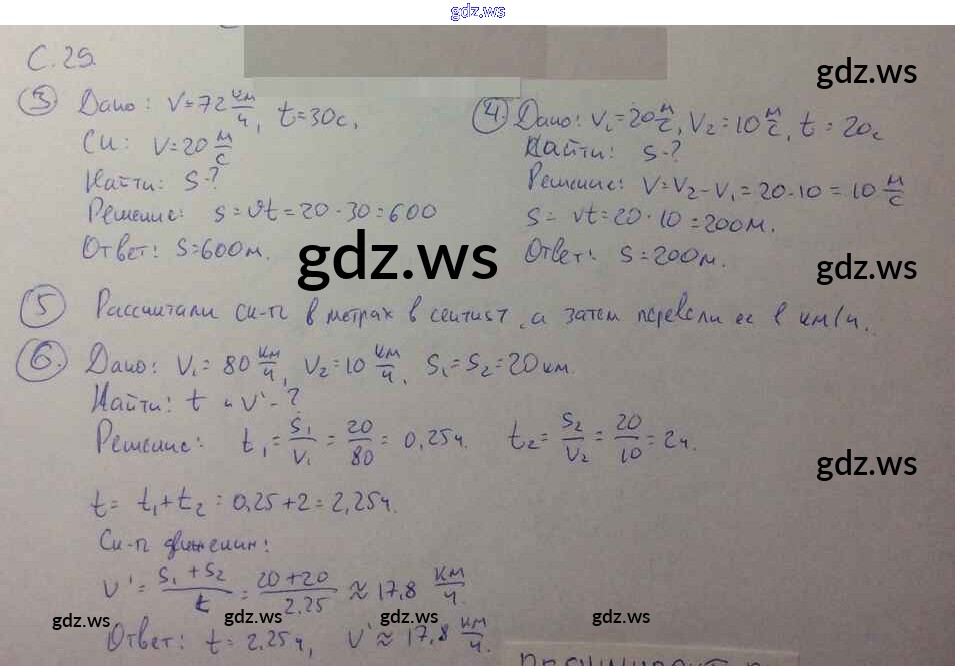 gdz.ws
С. 29.
gdz.ws
③ Дано: V=72 км/ч, t=30с,
СИ: V=20 м/с
Найти: S-?
Решение: S=vt=20·30=600
Ответ: S=600м.
④. Дано: V₁=20 м/с, V₂=10 м/с, t=20с
Найти: S-?
Решение: V=V₂-V₁=20-10=10 м/с
S= vt=20·10=200м.
Ответ: S=200м.
gdz.ws
gdz.ws
⑤ Рассчитали ск-ть в метрах в , а затем перевели ее в км/ч.
⑥. Дано: V₁=80 км/ч, V₂=10 км/ч, S₁=S₂=20км.
Найти: t и V'-?
Решение: t₁= S₁/V₁ = 20/80 = 0,25ч. t₂= S₂/V₂ = 20/10 = 2ч.
gdz.ws
t= t₁+t₂=0,25+2=2,25ч.
Ск-ть движения:
V'= S₁+S₂/t = 20+20/2,25 ≈ 17,8 км/ч.
gdz.ws gdz.ws gdz.ws gdz.ws
Ответ: t=2,25ч, V'≈17,8 км/ч.